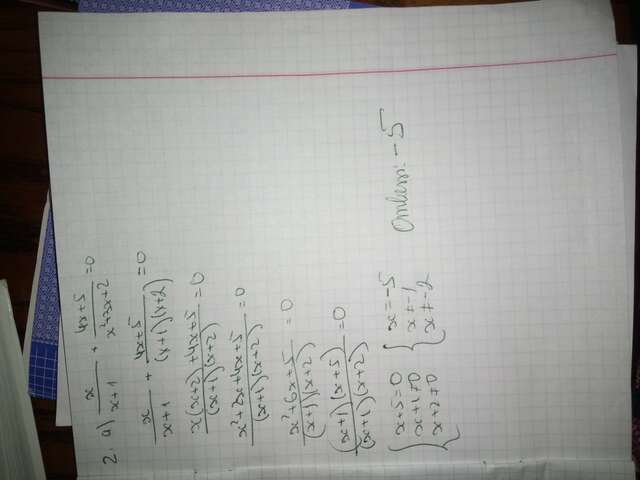 2. а) x/(x+1) + (4x+5)/(x²+3x+2) = 0
x/(x+1) + (4x+5)/((x+1)(x+2)) = 0
(x(x+2)+4x+5)/((x+1)(x+2)) = 0
(x²+2x+4x+5)/((x+1)(x+2)) = 0
(x²+6x+5)/((x+1)(x+2)) = 0
((x+1)(x+5))/((x+1)(x+2)) = 0
{ x+5=0 { x=-5 Ответ: -5
x+1≠0 x≠-1
x+2≠0 x≠-2